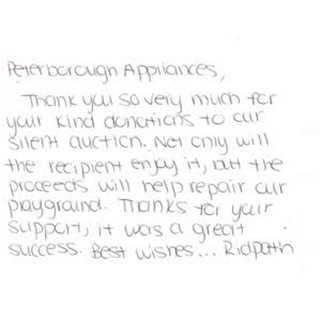 Peterborough Appliances,
Thank you so very much for
your kind donations to our
silent auction. Not only will
the recipient enjoy it, but the
proceeds will help repair our
playground. Thanks for your
support, it was a great
success. Best wishes... Ridpath